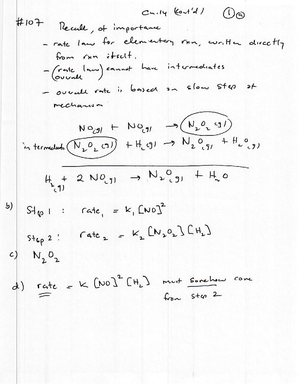 Ch. 14 (cont'd)
#107 Recall, of importance
- rate law for elementary rxn, written directly
from rxn itself.
- (rate law) cannot have intermediates
overall
- overall rate is based on slow step of
mechanism
NO(g) + NO(g) → N2O2(g)
intermediate N2O2(g) + H2(g) → N2O(g) + H2O(g)
H2(g) + 2 NO(g) → N2O(g) + H2O
b) Step 1: rate1 = k1[NO]²
Step 2: rate2 = k2[N2O2][H2]
c) N2O2
d) rate = k[NO]²[H2] must somehow come
from step 2